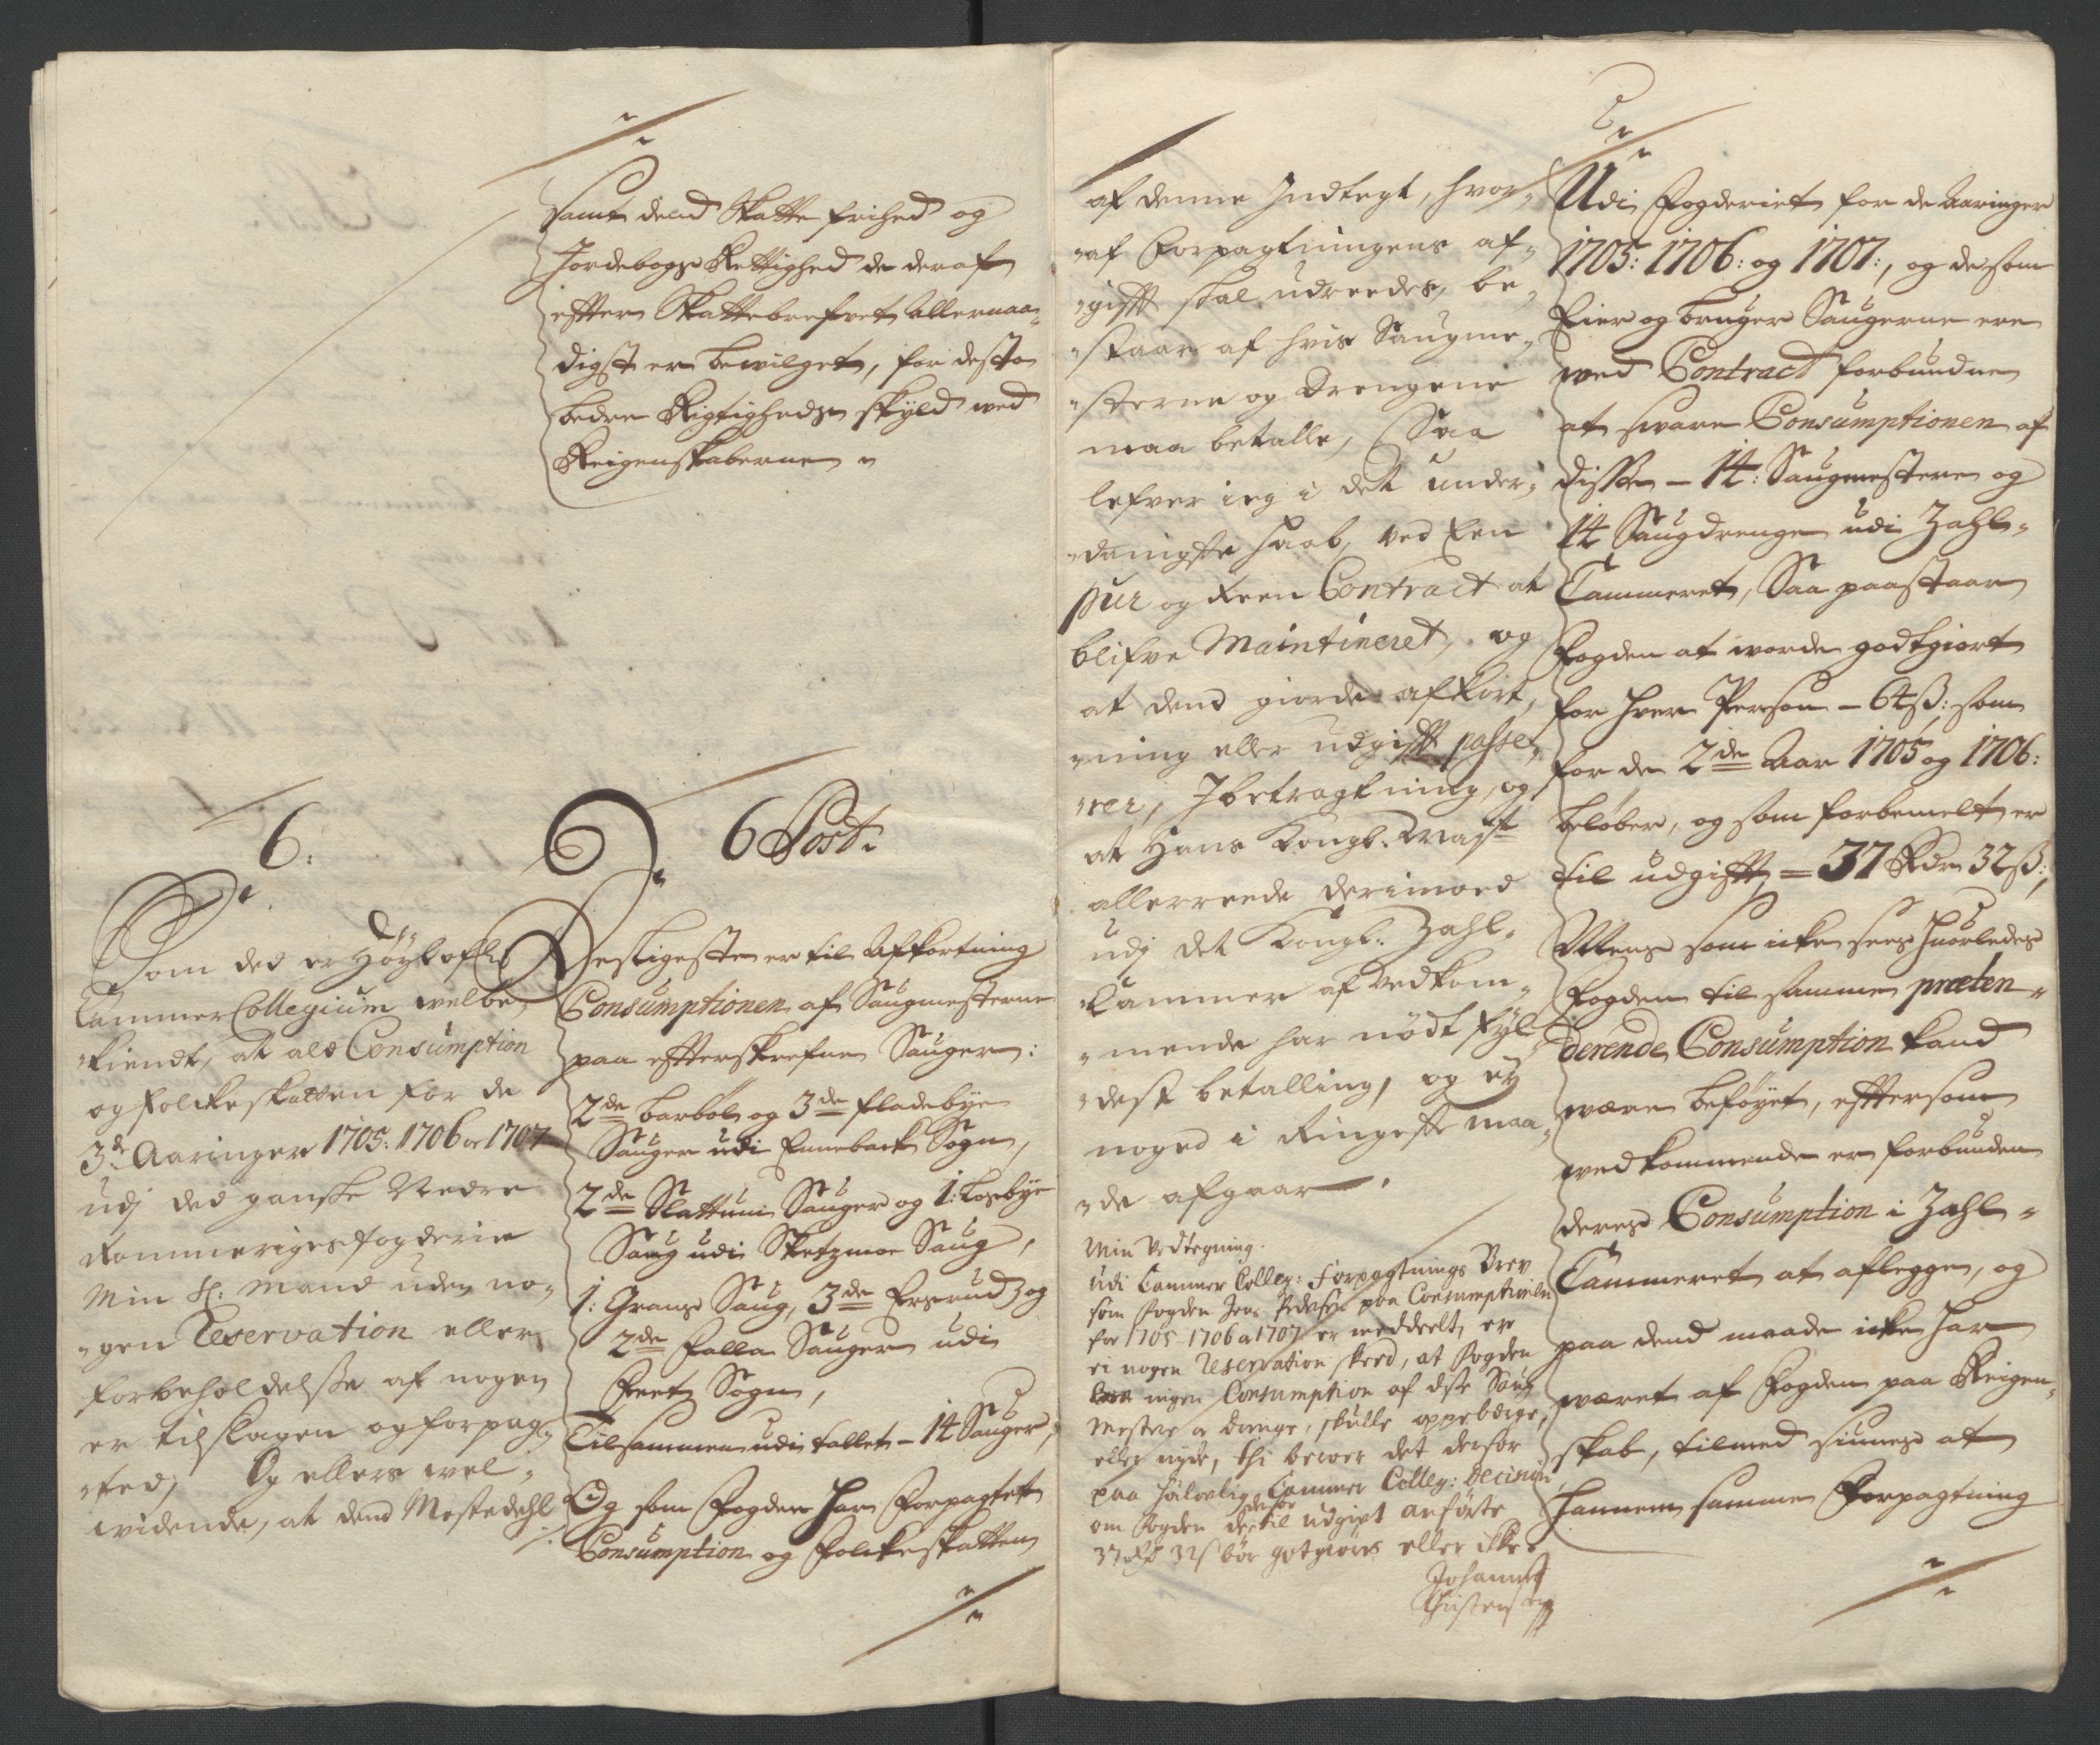 samt dend Skatte frihed og
Jordebogs Rettighed de deraf
effter Skattebrefvet Allernaa-
digst er bewilget, for desto
bedre Rigtigheds skyld wed
Reigenskaberne
6.
Som ded er Høylofl:
Cammer Collegium welbe-
kiendt, at ald Consumption
og folckeskatten for de
3de Aaringer 1705: 1706 og 1707
udj ded ganske Nedre
Rommeriges fogderie
Min Sl: Mand uden no-
gen Reservation eller
forbeholdelsse af nogen
er tilslagen og forpag-
ted, Og ellers wel-
widende, at dend Mestedehl
6 Post.
Desligeste er til Afkortning
Consumptionen af Saugmesterne
paa efterskrefne Sauger:
2de barbøl og 3de fladebye
Sauger udi Enneback Sogn,
2de Slattum Sauger og 1: Losbye
Saug udi Sketzmoe Saug,
1: Grans Saug, 3de Ersrud og
2de Falla Sauger udi
Feetz Sogn,
Tilsammen udi tallet - 14 Sauger,
Og som Fogden har Forpagtet
Consumption og Folckeskatten
af denne Indtegt, hvor-
af Forpagtningens af-
gifft skal udreedes, be-
staar af hvis Saugme-
sterne og Drengene
maa betalle, Saa
lefver ieg i det under-
danigste haab, ved Een
pur og Reen Contract at
blifve Maintineret, og
at dend giorde afkort-
ning eller udgifft passe-
rer, I betragtning, og
at Hans Kongl. Mayst
allerreede derimoed
udj det Kongl: Zahl-
Cammer af Vedkom-
mende har nødt fyl-
dest betalling, og ey
noged i Ringeste maa-
de afgaar.
Min Vedtegning.
Udi Cammer Colleg: Forpagtnings Brev
som Fogden Jens Pedersen paa Consumptionen
for 1705 1706 a 1707 er meddeelt, er
ei nogen Reservation skeed, at Fogden
ingen Consumption af diste Saug
Mestere a Drenge, skulle oppebærge,
eller nyde, thi beroer det derfor
paa høilovlig Cammer Colleg: Decision,
om Fogden derfor dertil udgift anførte
37 Rdr 32 s bør gotgiøres eller ikke.
Johannes
Christensen
Udi Fogderiet for de Aaringer
1705: 1706: og 1707:, og de som
Eier og bruger Saugerne ere
wed Contract forbundne
at sware Consumptionen af
disse - 14: Saugmestere og
14 Saugdrenge udi Zahl-
Cammeret, Saa paastaar
Fogden at worde godtgiort
for hver Person - 64 ß: som
for de 2de Aar 1705 og 1706:
beløber, og som forbemelt er
til udgifft = 37 Rdr 32 ß:,
Mens som icke sees huorledes
Fogden til samme præten-
derende Consumption kand
være beføyet, effttersom
wedkommende er forbunden
deres Consumption i Zahl-
Cammeret at aflegge, og
paa dend maade icke har
wæret af Fogden paa Reigen-
skab, tilmed siunes at
hannem samme Forpagtning